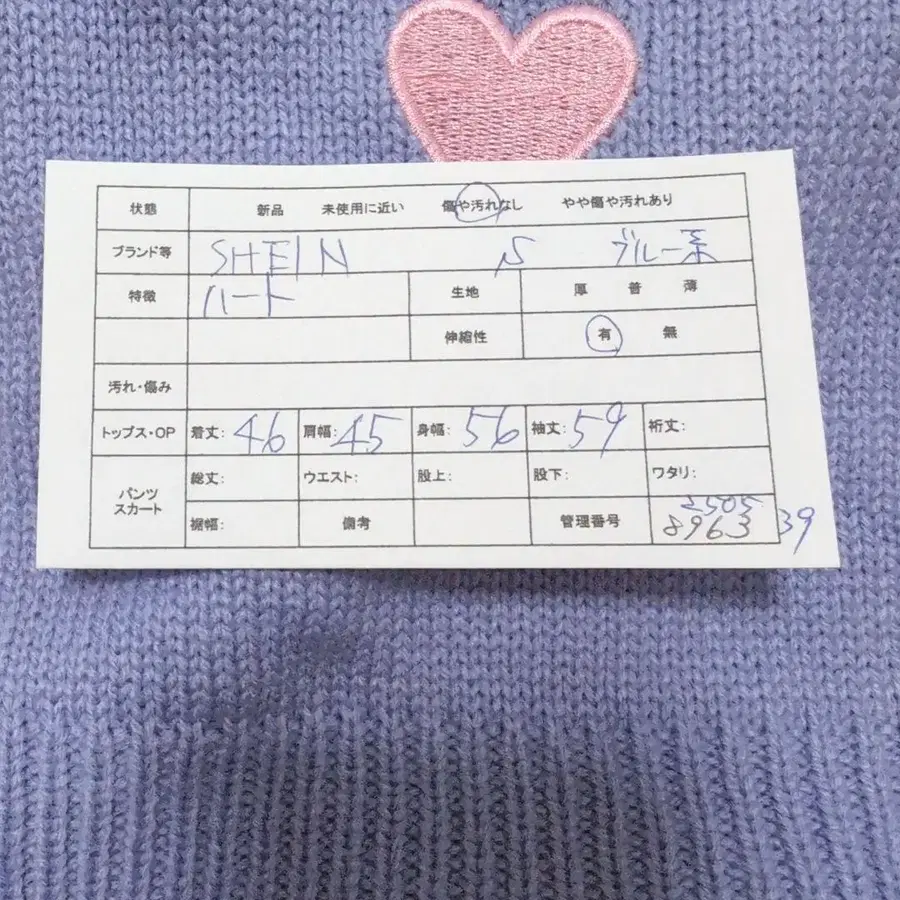 状態 新品 未使用に近い 傷や汚れなし やや傷や汚れあり
ブランド等 SHEIN S ブルー系
特徴 ハート 生地 厚 普 薄
伸縮性 有 無
汚れ・傷み
トップス・OP 着丈: 46 肩幅: 45 身幅: 56 袖丈: 59 裄丈:
パンツ スカート 総丈: ウエスト: 股上: 股下: ワタリ:
裾幅: 備考 管理番号 2505 8963 39